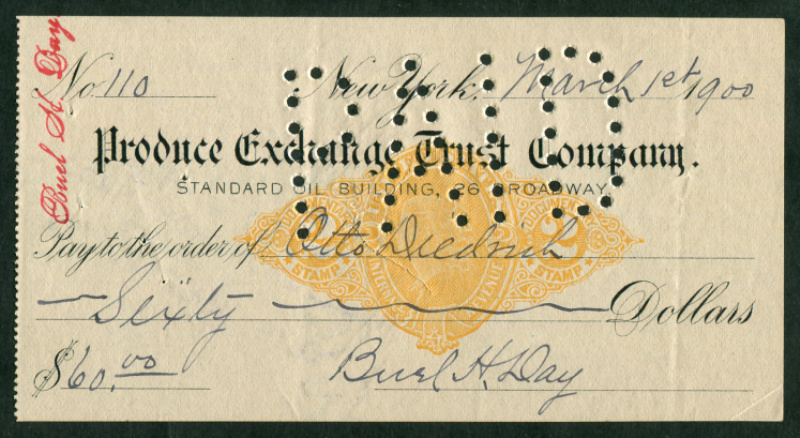 Buel H. Day
No. 110 New York, March 1st 1900
PAID
Produce Exchange Trust Company.
STANDARD OIL BUILDING, 26 BROADWAY.
Pay to the order of Otto Diedrich
DOCUMENTARY DOCUMENTARY
2 2
STAMP STAMP
INTERNAL REVENUE
Sixty Dollars
$60.00 Buel H. Day